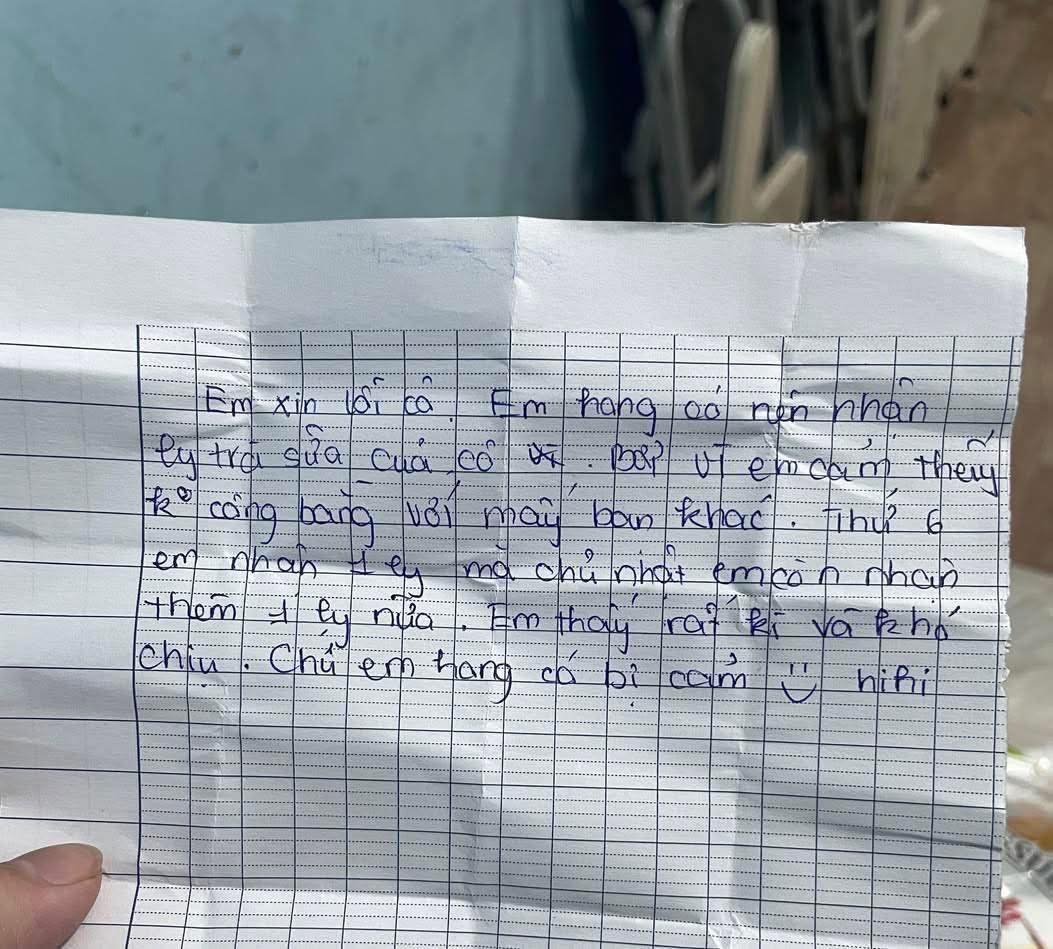 Em xin lỗi cô. Em hong có nên nhận
ly trà sữa của cô. Bởi vì em cảm thấy
ko công bằng với mấy bạn khác. Thứ 6
em nhận 1 ly mà chủ nhật em còn nhận
thêm 1 ly nữa. Em thấy rất kì và khó
chịu. Chứ em hong có bị cảm :) hihi